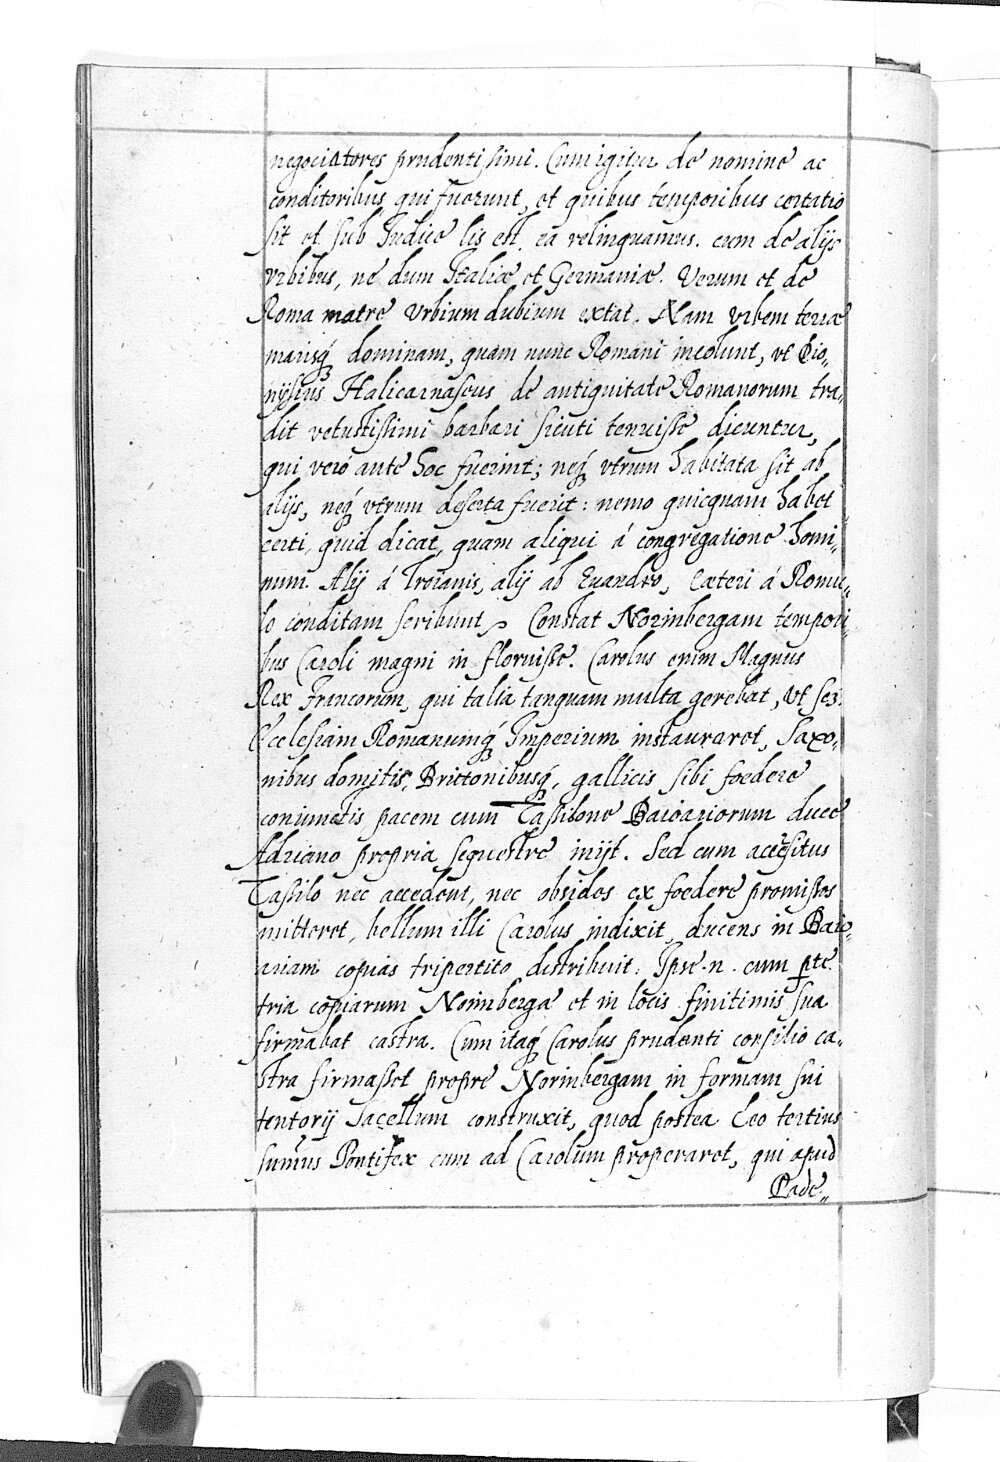 negociatores prudentissimi. Cum igitur de nomine ac
conditoribus qui fuerunt, et quibus temporibus certatio
sit et sub Iudice lis est, ea relinquamus. cum de alijs
vrbibus, ne dum Italiæ et Germaniæ. Verum et de
Roma matre Vrbium dubium extat. Nam vrbem terræ
marisq́ dominam, quam nunc Romani incolunt, vt Dio„
nijsius Halicarnaseus de antiquitate Romanorum tra„
dit vetustissimi barbari sicuti tenuisse dicuntur,
qui veró ante hoc fuerint; neq́ vtrum habitata sit ab
alijs, neq́ vtrum deserta fuerit: nemo quicquam habet
certi, quid dicat, quam aliqui á congregatione homi„
num. Alij á Troianis, alij ab Euandro, Cæteri á Romu„
lo conditam scribunt. Constat Norimbergam tempori„
bus Caroli magni in floruisse. Carolus enim Magnus
Rex Francorum, qui talia tanquam multa gerebat, vt scz.
Ecclesiam Romanumq́ Imperium instauraret, Saxo„
nibus domitis, Brittonibusq́, gallicis sibi foedere
coniunctis pacem cum Tassilone Baioariorum duce
Adriano propria sequestre inijt. Sed cum accersitus
Tassilo nec accederet, nec obsides ex foedere promissos
mitteret, bellum illi Carolus indixit, ducens in Baio„
ariam copias tripertito distribuit. Ipse .n. cum pte
tria copiarum Norimbergæ et in locis finitimis sua
firmabat castra. Cum itaq́ Carolus prudenti consilio ca„
stra firmasset propre Norimbergam in formam sui
tentorij Sacellum construxit, quod postea Leo tertius
sum̃us Pontifex cum ad Carolum properaret, qui apud
Pade„